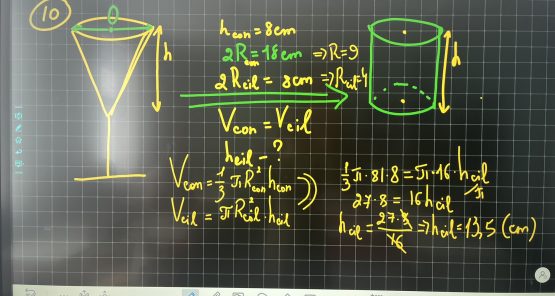 10
h
h_con = 8cm
2R_con = 18cm ⇒ R=9
2R_cil = 8cm ⇒ R_cil=4
V_con = V_cil
h_cil - ?
h
V_con = 1/3 π R²_con · h_con
V_cil = π R²_cil · h_cil
1/3 π · 81 · 8 = π · 16 · h_cil /π
27 · 8 = 16 h_cil
h_cil = 27 · 8 / 16 ⇒ h_cil = 13,5 (cm)